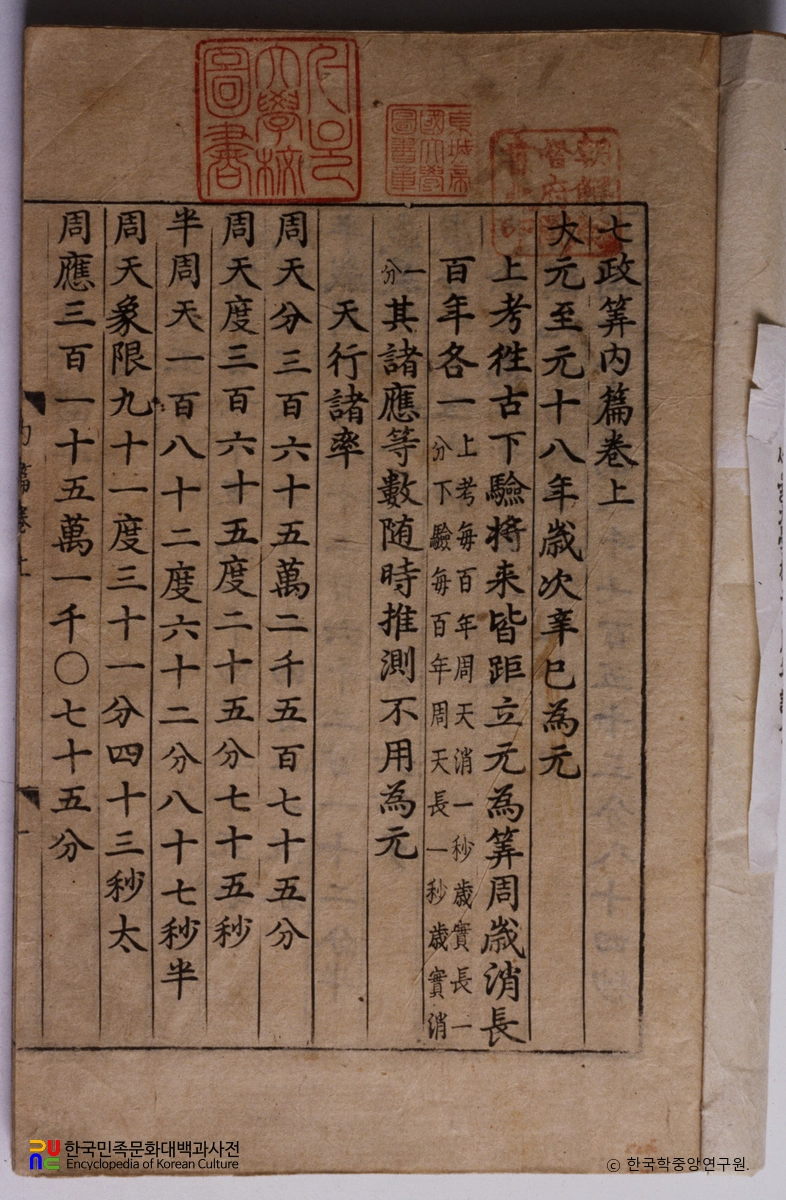 서울大學校圖書
京城帝國大學圖書章
七政筭内篇卷上
大元至元十八年歲次辛巳為元
上考徃古下驗将来皆距立元為筭周歲消長
百年各一上考每百年周天消一秒歲實長一
分下驗每百年周天長一秒歲實消
一分其諸應等數随時推測不用為元
天行諸率
周天分三百六十五萬二千五百七十五分
周天度三百六十五度二十五分七十五秒
半周天一百八十二度六十二分八十七秒半
周天象限九十一度三十一分四十三秒太
周應三百一十五萬一千〇七十五分
한국민족문화대백과사전
Encyclopedia of Korean Culture
© 한국학중앙연구원.